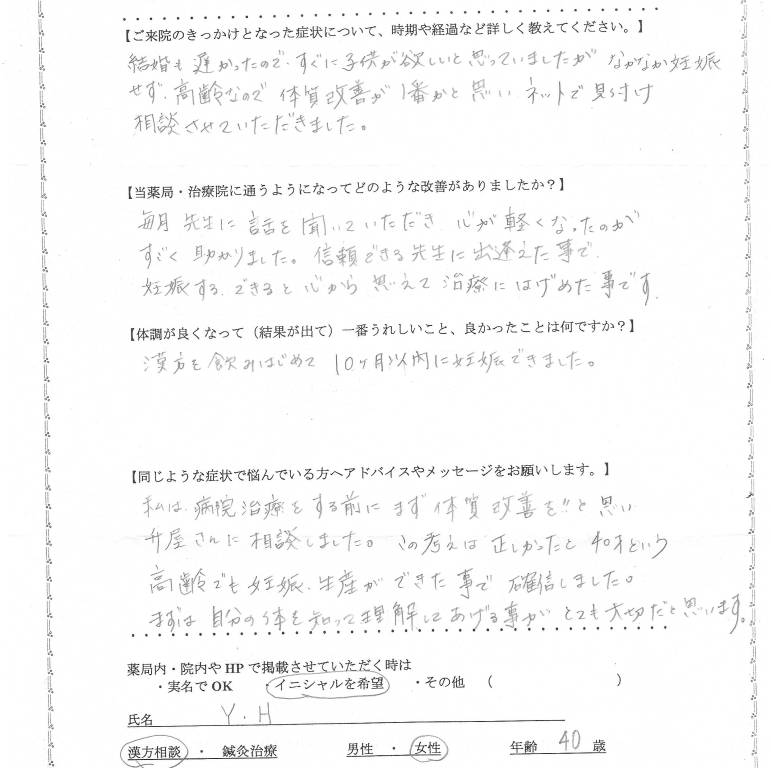 【ご来院のきっかけとなった症状について、時期や経過など詳しく教えてください。】
結婚も遅かったので、すぐに子供が欲しいと思っていましたが なかなか妊娠
せず、高齢なので 体質改善が 1番かと思い ネットで見付け
相談させていただきました。
【当薬局・治療院に通うようになってどのような改善がありましたか?】
毎月 先生に 話を聞いていただき、心が軽くなったのが
すごく助かりました。信頼できる先生に出逢えた事で、
妊娠する、できると心から思えて治療にはげめた事です。
【体調が良くなって(結果が出て)一番うれしいこと、良かったことは何ですか?】
漢方を飲みはじめて 10ヶ月以内に妊娠できました。
【同じような症状で悩んでいる方へアドバイスやメッセージをお願いします。】
私は、病院治療をする前にまず体質改善を!!と思い
弁屋さんに相談しました。この考えは正しかったと 40才という
高齢でも妊娠、生産ができた事で確信しました。
まずは自分の体を知って理解してあげる事がとても大切だと思います。
薬局内・院内やHPで掲載させていただく時は
・実名でOK ・イニシャルを希望 ・その他 ( )
氏名 Y.H
漢方相談 ・ 鍼灸治療 男性 ・ 女性 年齢 40 歳